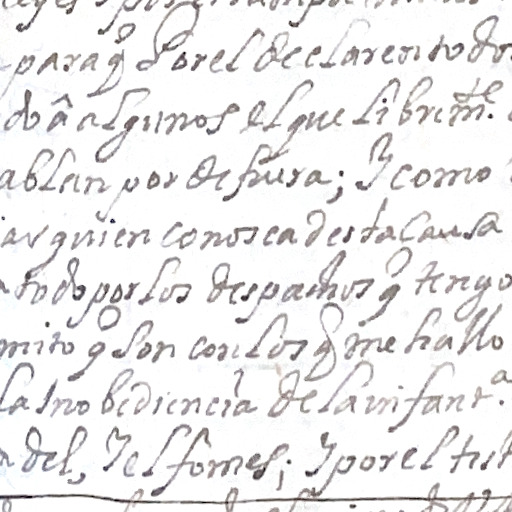 paraq̃ Por el declaren todos
do â algunos el que librem.te
ablan por de fuera; Y como
ar quien conosca desta Causa
todo por los despachos q̃ tengo
mito q̃ son con los q̃ me hallo
la Inobediencia de la infant.a
del, Y el fomes; Y por el tit